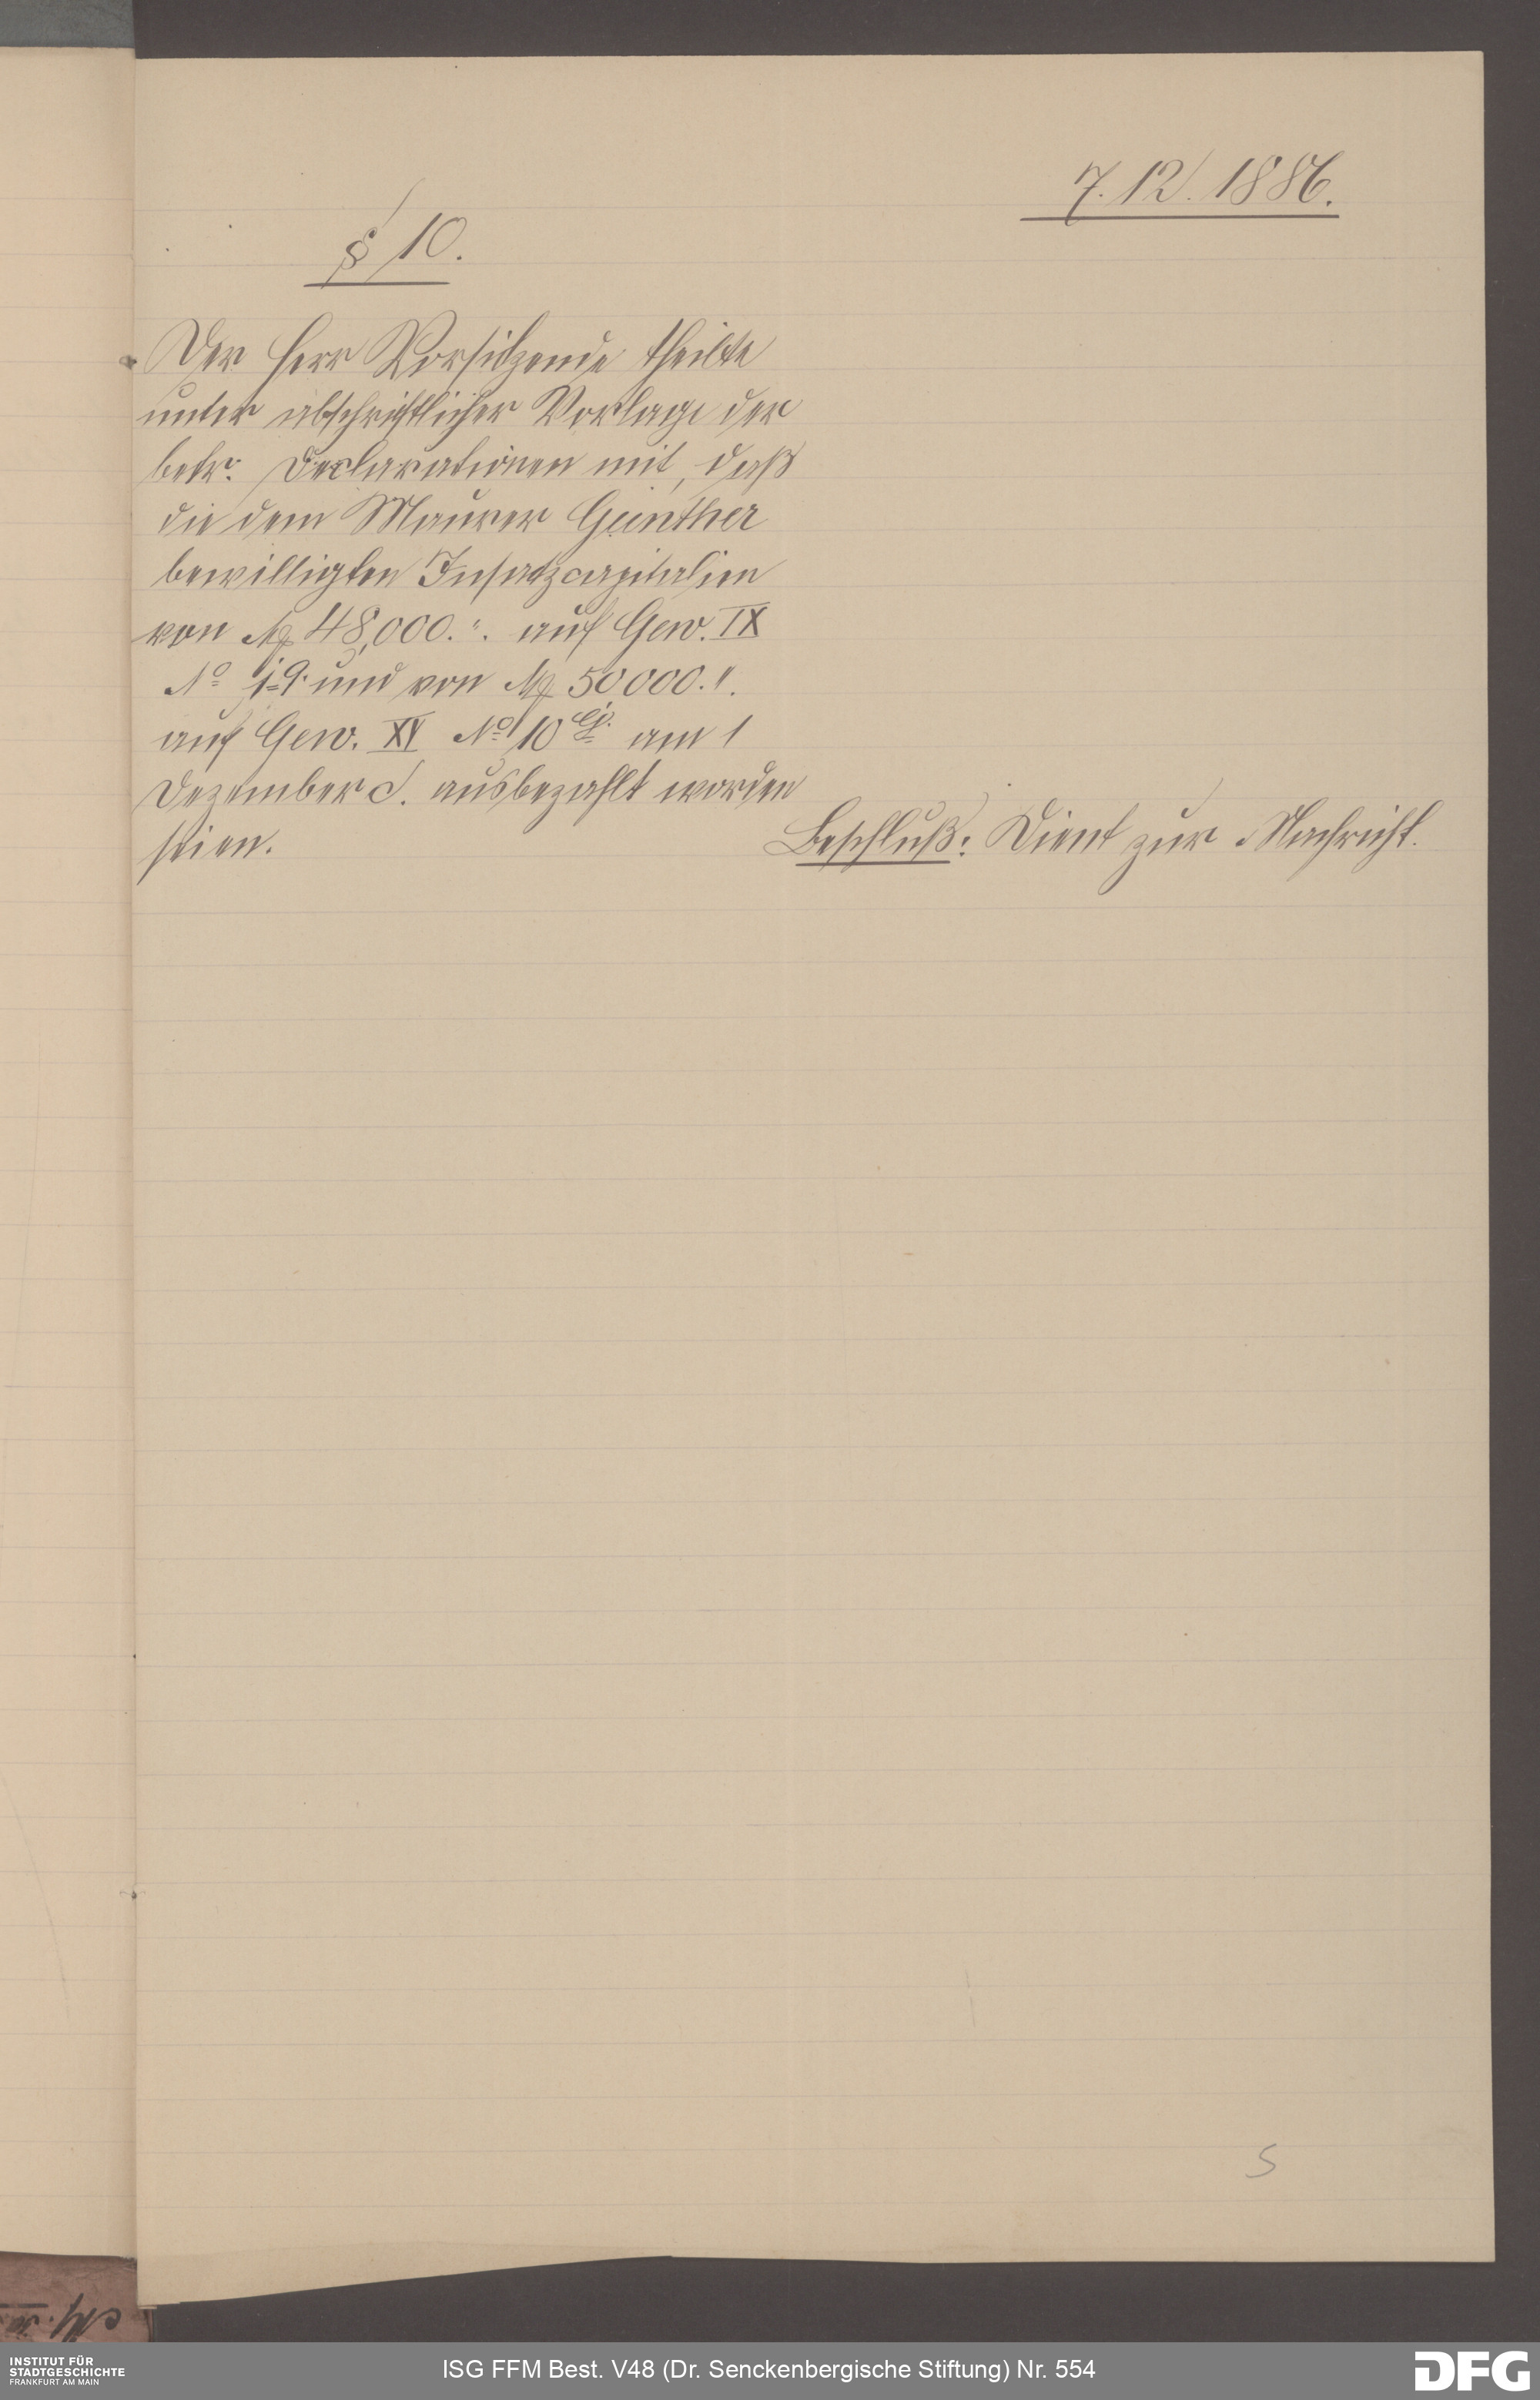 7.12.1886.
§ 10.
Der Herr Vorsitzende theilte
unter abschriftlicher Vorlage der
betr. Declarationen mit, daß
die dem Maurer Günther
bewilligten Insatzcapitalien
von M 48,000.". auf Gew. IX
No 19. und von M 50000.".
auf Gew. XV No 10 am 1
Dezember d. ausbezahlt worden
seien.
Beschluß: Dient zur Nachricht.
S
INSTITUT FÜR
STADTGESCHICHTE
FRANKFURT AM MAIN
ISG FFM Best. V48 (Dr. Senckenbergische Stiftung) Nr. 554
DFG